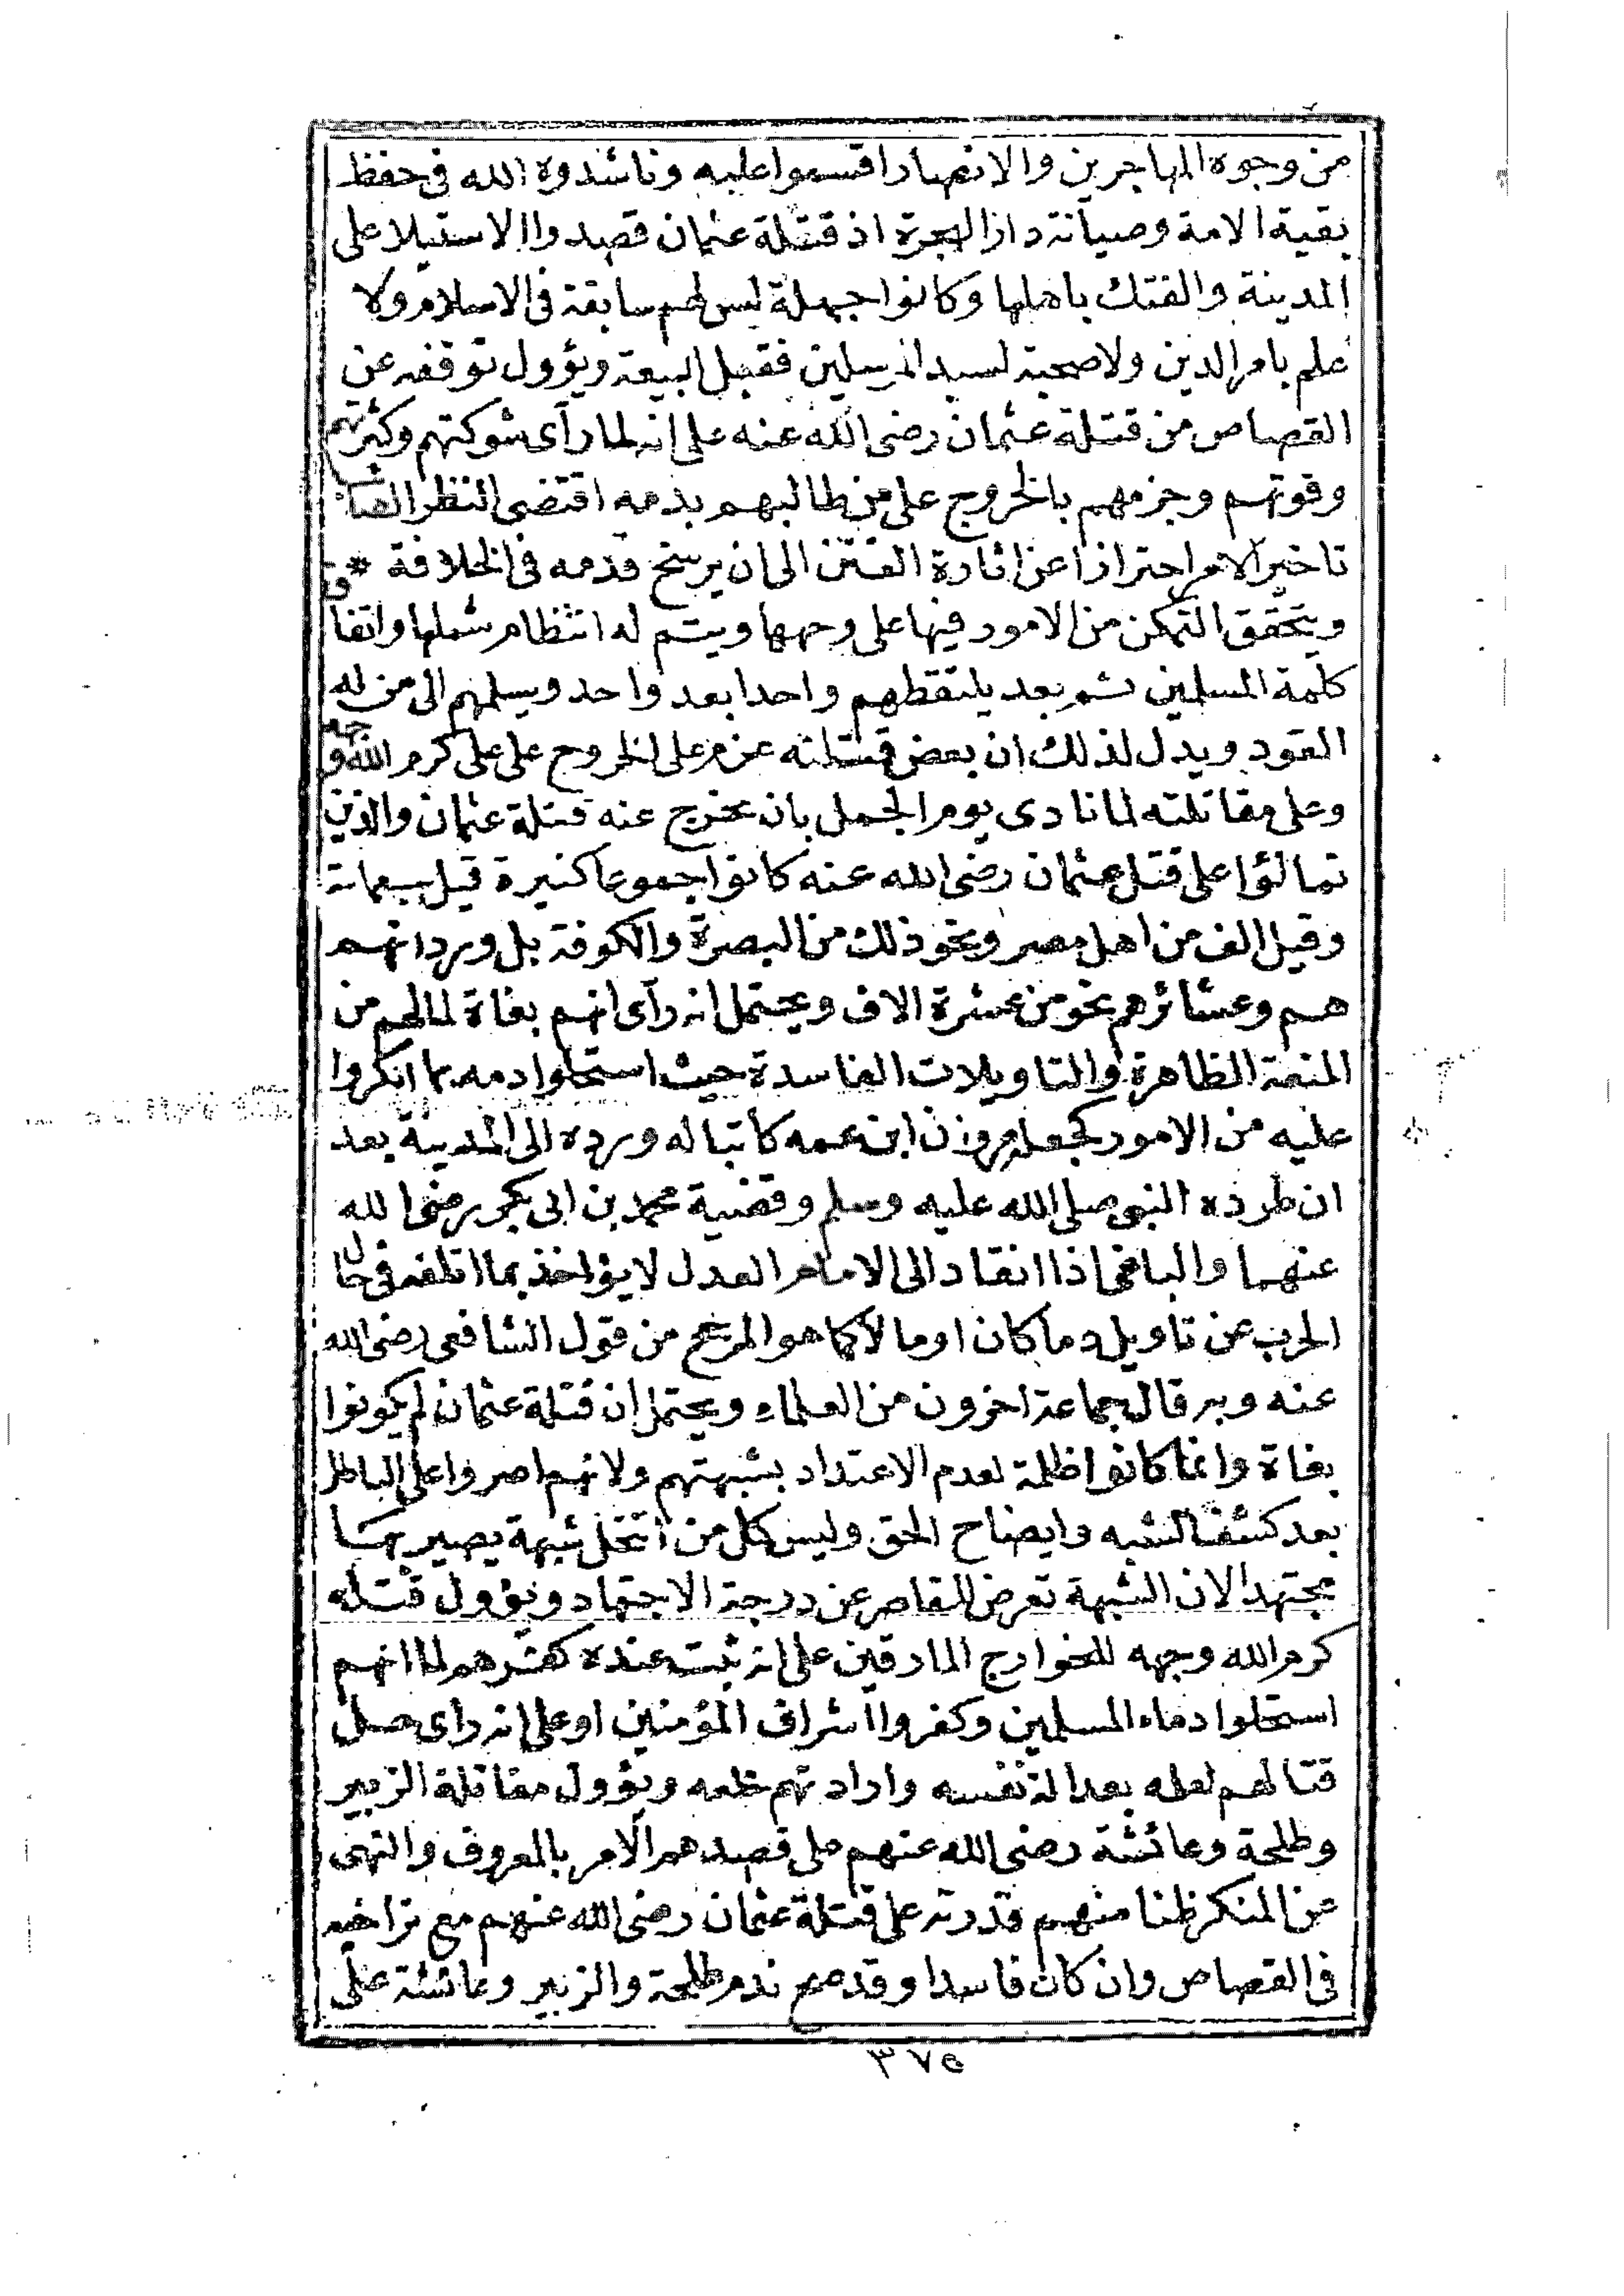 من وجوه المهاجرين والانصار اقسموا عليه وناشدوه الله فى حفظ
بقية الامة وصيانة دار الهجرة اذ قتلة عثمان قصدوا الاستيلا على
المدينة والفتك باهلها وكانوا جهلة ليس لهم سابقة فى الاسلام ولا
علم بامر الدين ولا صحبة لسيد المرسلين فقبل البيعة ويؤول توقفه عن
القصاص من قتلة عثمان رضى الله عنه على انه لما رآى شوكتهم وكثرتهم
وقوتهم وجزمهم بالخروج على من طالبهم بدمه اقتضى النظر الصائب
تاخير الامر احترازا عن اثارة الفتن الى ان يرسخ قدمه فى الخلافة *
ويتحقق التمكن من الامور فيها على وجهها ويتم له انتظام شملها واتفاق
كلمة المسلمين ثم بعد يلتقطهم واحدا بعد واحد ويسلمهم الى من له
القود ويدل لذلك ان بعض قتلته عزم على الخروج على على كرم الله وجهه
وعلى مقاتلته لما نادى يوم الجمل بان يخرج عنه قتلة عثمان والذين
تمالؤا على قتل عثمان رضى الله عنه كانوا جموعا كثيرة قيل سبعمائة
وقيل الف من اهل مصر ونحو ذلك من البصرة والكوفة بل ورد انهم
هم وعشائرهم نحو من عشرة الاف ويحتمل انه رآى انهم بغاة لما لهم من
المنعة الظاهرة والتاويلات الفاسدة حيث استحلوا دمه بما انكروا
عليه من الامور كجعله مروان ابن عمه كاتبا له ورده الى المدينة بعد
ان طرده النبى صلى الله عليه وسلم وقضية محمد بن ابى بكر رضى الله
عنهما والباغى اذا انقاد الى الامام العدل لا يؤاخذ بما اتلفه فى حال
الحرب عن تاويل دما كان او مالا كما هو المرجح من قول الشافعى رضى الله
عنه وبه قال جماعة اخرون من العلماء ويحتمل ان قتلة عثمان لم يكونوا
بغاة وانما كانوا ظلمة لعدم الاعتداد بشبهتهم ولانهم اصروا على الباطل
بعد كشف الشبه وايضاح الحق وليس كل من انتحل شبهة يصير بها
مجتهدا لان الشبهة تعرض للقاصر عن درجة الاجتهاد ويؤول قتله
كرم الله وجهه للخوارج المارقين على انه ثبت عنده كفرهم لما انهم
استحلوا دماء المسلمين وكفروا اشراف المؤمنين او على انه راى حل
قتالهم لعلمه بعدالة نفسه وارادتهم خلعه ويؤول مقاتلة الزبير
وطلحة وعائشة رضى الله عنهم على قصدهم الامر بالمعروف والنهى
عن المنكر ظنا منهم قدرته على قتلة عثمان رضى الله عنهم مع تراخيه
فى القصاص وان كان فاسدا وقد صح ندم طلحة والزبير وعائشة على
٣٧٥